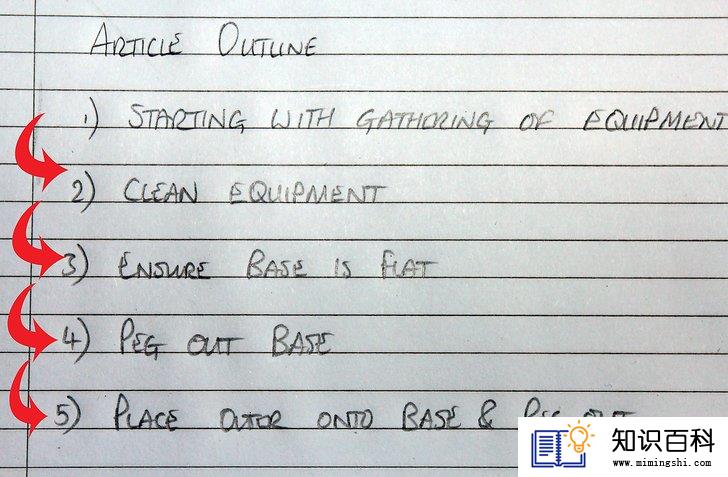 ARTICLE OUTLINE
1) STARTING WITH GATHORING OF EQUIPMENT
2) CLEAN EQUIPMENT
3) ENSURE BASE IS FLAT
4) PEG OUT BASE
5) PLACE OUTOR ONTO BASE &
知识百科
www.mimingshi.com